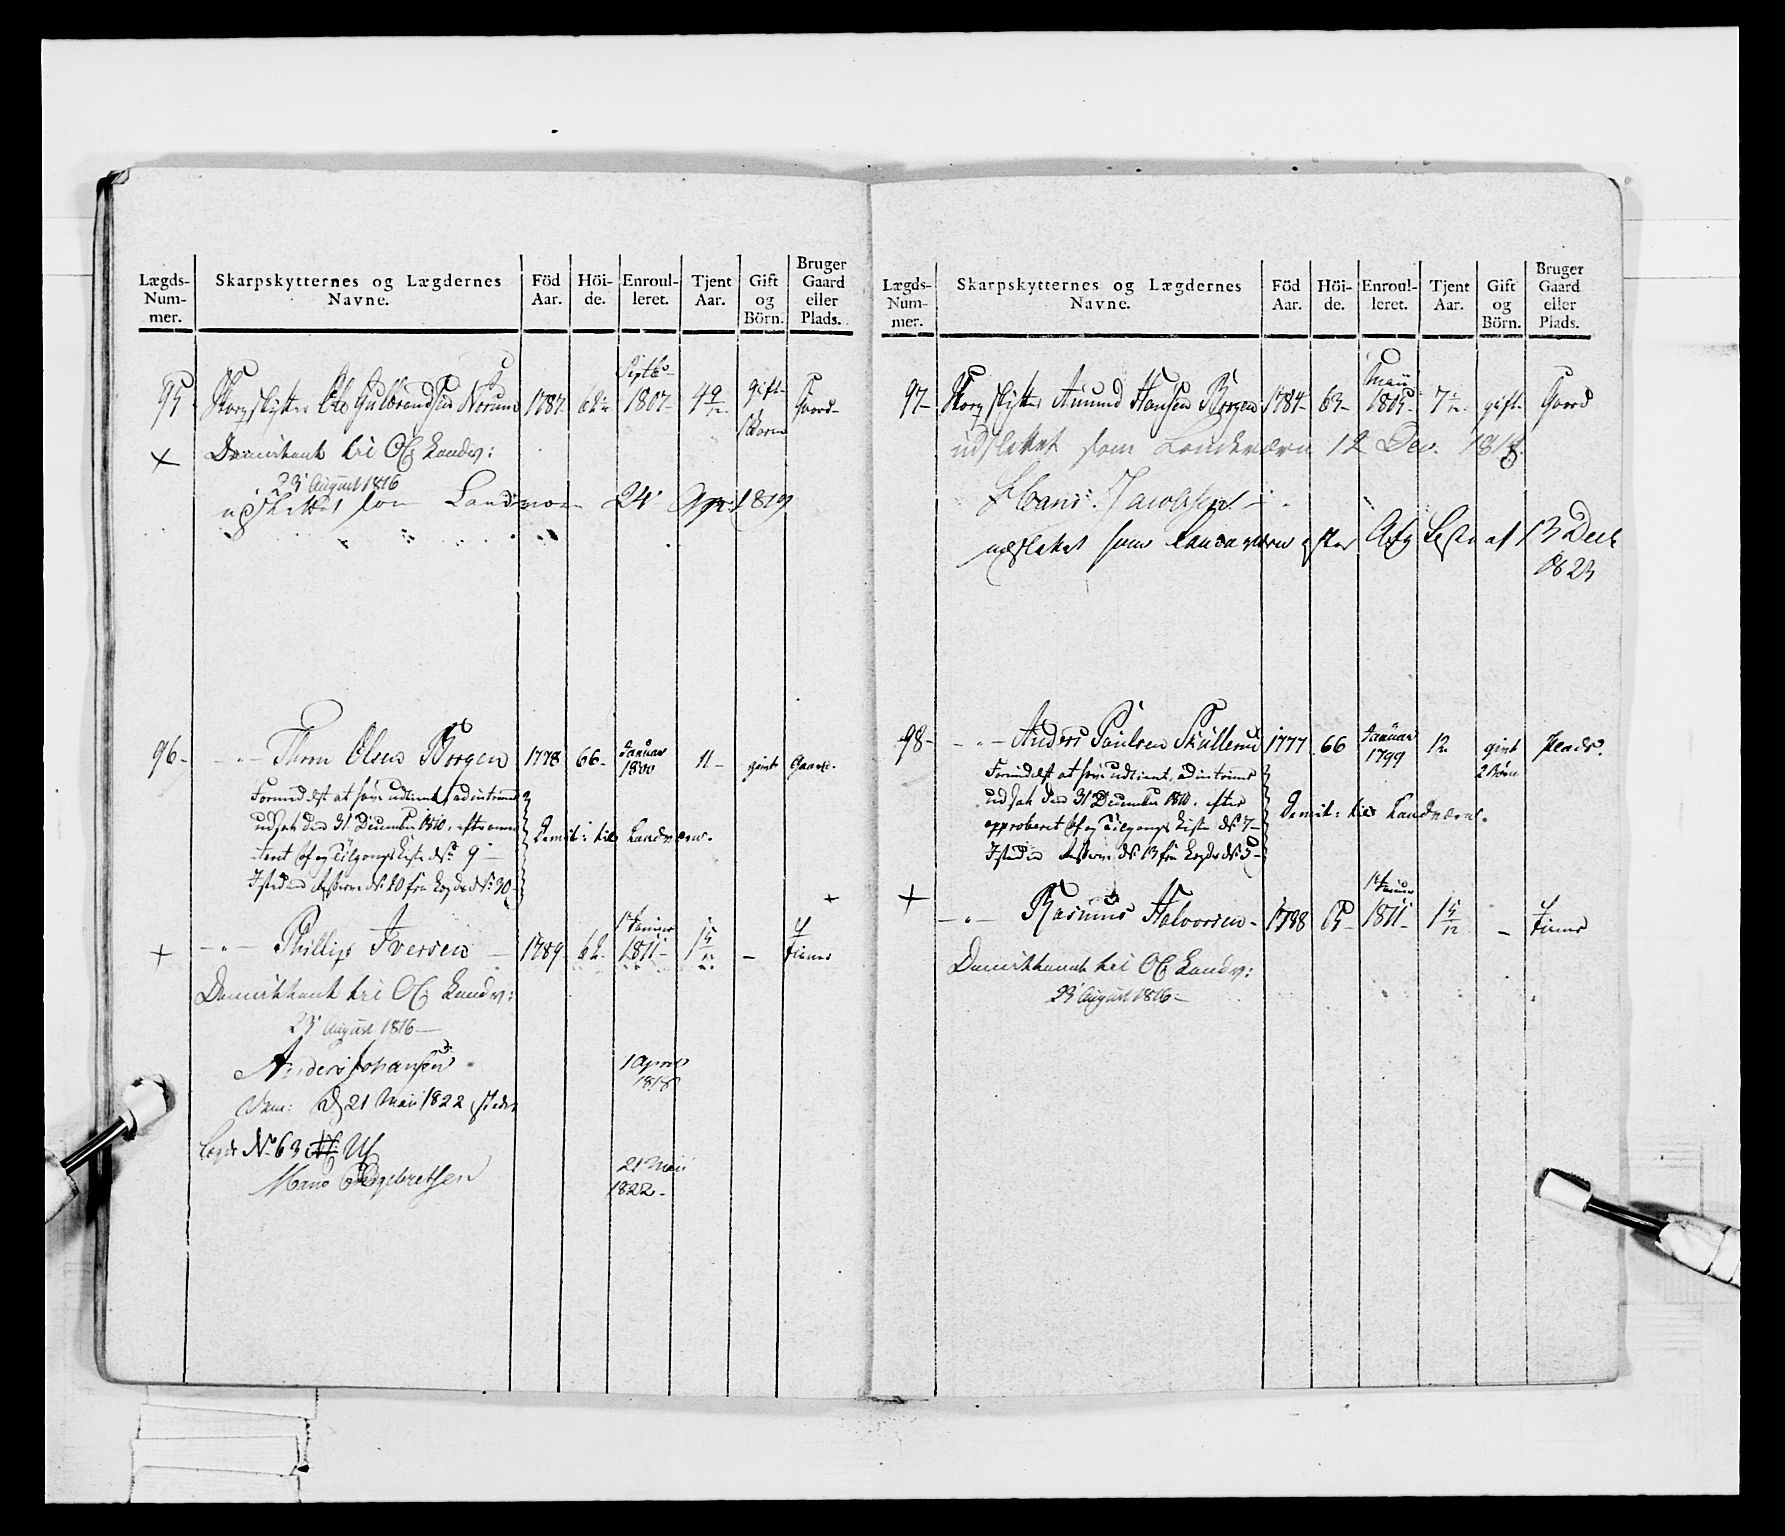 Lægds-Num-mer. Skarpskytternes og Lægdernes Navne. Föd Aar. Höi-de. Enroul-leret. Tjent Aar. Gift og Börn. Bruger Gaard eller Plads.
95 Skarpskytter Ole Gulbrandsen Norum 1787 62 Septbr 1807 4 9/12 gift 1 Barn Gaard
Demitteret til Landv:
23' August 1816
som Landværn 24' Apr: 1819
96 - " - Thorn Olsen Borgen 1778 66 Januar 1800 11 givt Gaard.
Formedelst at have udtient, ad interims
udsat den 31 December 1810, efter
Tilgangs Liste No 9
Isteden Reserve No 20 fra Lægds No 30
Demit: til Landværn.
- " - Phillip Iversen 1789 62 1 Januar 1811 1 5/12 - Tiener
Demitteret til Landv:
23' August 1816
Anders Johansen 1 April 1818
Dem: d 21 Maii 1822, isteden
Lægd No 63
Hans Engebretsen 21 Maii 1822
Lægds-Num-mer. Skarpskytternes og Lægdernes Navne. Föd Aar. Höi-de. Enroul-leret. Tjent Aar. Gift og Börn. Bruger Gaard eller Plads.
97 Skarpskytter Amund Hansen Borgen 1784 63 Maii 1805 7 gift Gaard
udslettet som Landværn 12 Dec. 1818
Hans: Jacobsen
udslettet som Landværn efter Afg Liste af 13 Decb
1823
98 - " - Anders Paulsen Skullerud 1777 66 Januar 1799 12 givt 2 Børn Plads.
Formedelst at have udtient, ad interims
udsat den 31 December 1810, efter
approberet Af og Tilgangs Liste No 7
Isteden Reserve No 13 fra Lægds No 5
Demit: til Landværn.
- " - Rasmus Halvorsen 1788 1 Januar 1811 1 5/12 - Tiener
Demitteret til Landv:
23' August 1816